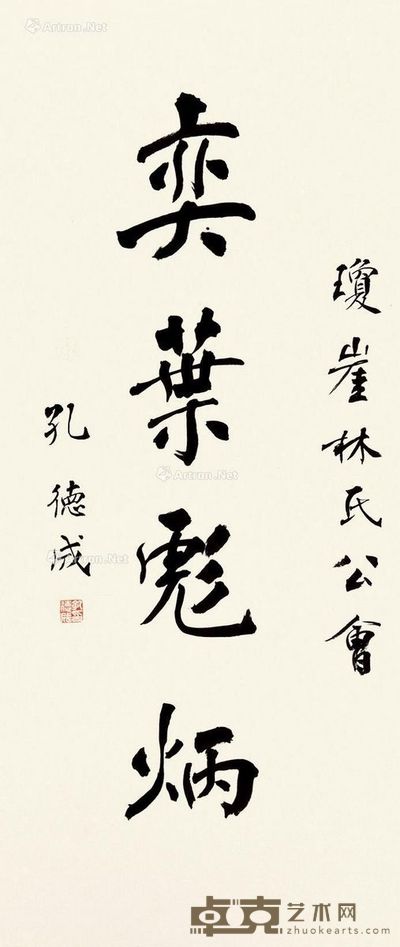 瓊崖林氏公會
奕葉彪炳
孔德成
Artron.Net
Artron.Net
Artron.Net
卓克艺术网
zhuokearts.com